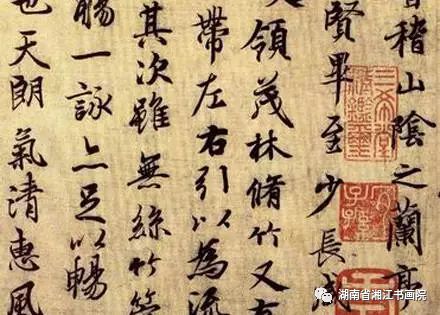 稽山陰之蘭亭
賢畢至少長咸
領茂林脩竹又有
帶左右引以為流
其次雖無絲竹管
觴一詠亦足以暢
也天朗氣清惠風
三希堂精鑑璽
宜子孫
湖南省湘江书画院